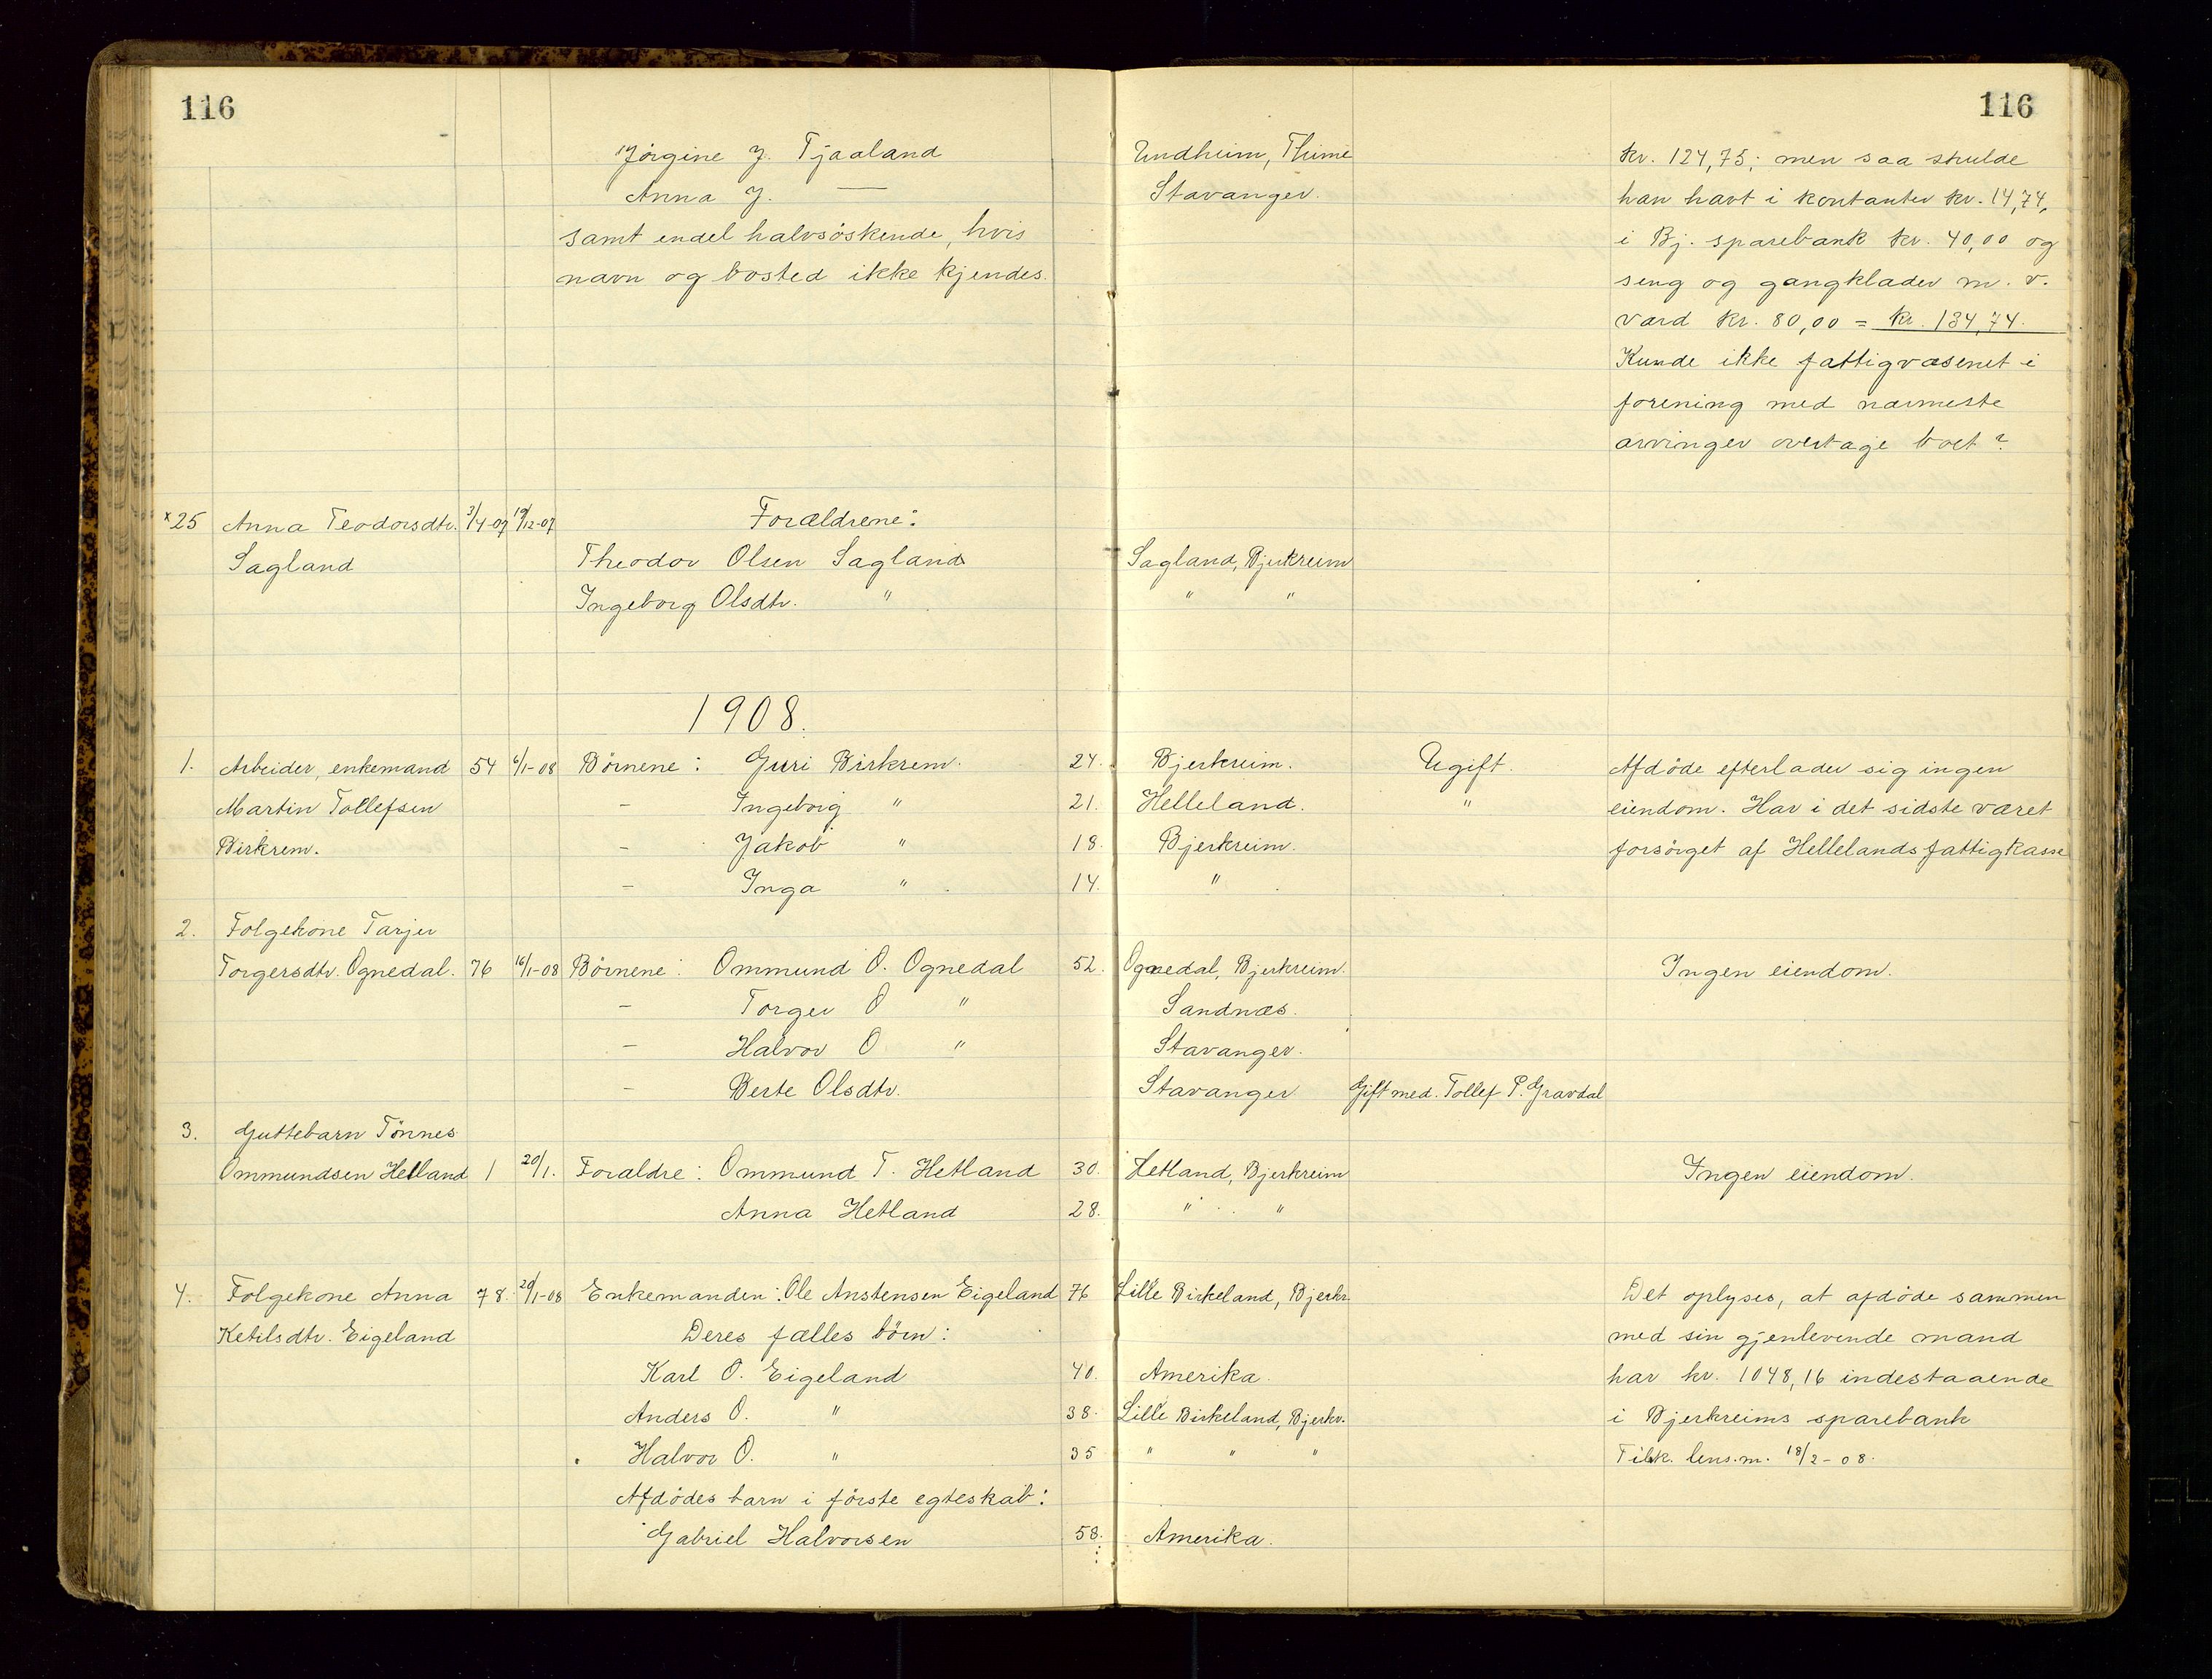 116
116
Jörgine J. Tjaaland Undheim, Thime kr. 124,75; men saa skulde
Anna J. — Stavanger. han havt i kontanter kr. 14,74,
samt endel halvsöskende, hvis i Bj. sparebank kr. 40,00 og
navn og bosted ikke kjendes. seng og gangklæder m. v.
værd kr. 80,00 = kr. 134,74.
Kunde ikke fattigvæsenet i
forening med nærmeste
arvinger overtage boet?
×25 Anna Teodorsdtr. 3/4-07 19/12-07 Forældrene:
Sagland Theodor Olsen Sagland Sagland, Bjerkreim
Ingeborg Olsdtr. " " "
1908.
1. Arbeider, enkemand 54 6/1-08 Börnene: Guri Birkrem. 24. Bjerkreim. Ugift. Afdöde efterlader sig ingen
Martin Tollefsen – Ingeborg " 21. Helleland. " eiendom. Har i det sidste været
Birkrem. – Jakob " 18. Bjerkreim. forsörget af Hellelands fattigkasse
– Inga " 14. "
2. Folgekone Tarjer
Torgersdtr. Ognedal. 76 16/1-08 Börnene: Ommund O. Ognedal 52. Ognedal, Bjerkreim. Ingen eiendom.
– Torger O " Sandnæs.
– Halvor O " Stavanger.
– Berte Olsdtr. Stavanger Gift med. Tollef P. Gravdal
3. Guttebarn Tönnes
Ommundsen Hetland 1 20/1. Forældre: Ommund T. Hetland 30. Hetland, Bjerkreim Ingen eiendom.
Anna Hetland 28. " "
4. Folgekone Anna 78. 20/1-08 Enkemanden: Ole Anstensen Eigeland 76 Lille Birkeland, Bjerkr. Det oplyses, at afdöde sammen
Ketilsdtr. Eigeland Deres fælles börn: med sin gjenlevende mand
Karl O. Eigeland 40. Amerika. har kr. 1048,16 indestaaende
Anders O. " 38. Lille Birkeland, Bjerkr. i Bjerkreims sparebank
Halvor O. " 35 " " " Tilsk. lens.m. 18/2-08.
Afdödes barn i förste egteskab:
Gabriel Halvorsen 58. Amerika.